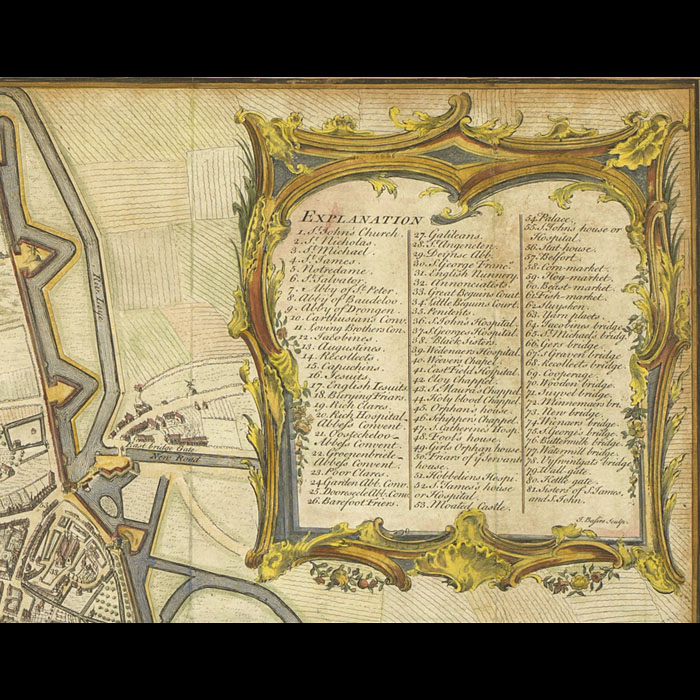 EXPLANATION
1. St. John's Church.
2. St. Nicholas.
3. St. Michael.
4. St. James.
5. Notredame.
6. St. Salvator.
7. Abby of St. Peter.
8. Abby of Baudeloo.
9. Abby of Drongen.
10. Carthusians Conv.
11. Loving Brothers Con.
12. Jacobines.
13. Augustines.
14. Recollects.
15. Capuchins.
16. Jesuits.
17. English Jesuits.
18. Burying Friars.
19. Rich Clares.
20. Rich Hospital.
Abbess Convent.
21. Oostecloo-
Abbess Convent.
22. Groenenbriele-
Abbess Convent.
23. Poor Clares.
24. Garden Abb. Conv.
25. Dooresele Abb. Conv.
26. Barefoot Friers.
27. Galileans.
28. St. Angeneten.
29. Deynse Abb.
30. St. George Franc.
31. English Nunnery.
32. Annonciatists.
33. Great Beguins Court.
34. Little Beguins Court.
35. Penitents.
36. St. John's Hospital.
37. St. George's Hospital.
38. Black Sisters.
39. Wedenaers Hospital.
40. Weevers Chapel.
41. East Field Hospital.
42. Eloy Chappel.
43. St. Laura's Chappel.
44. Holy blood Chappel.
45. Orphan's house.
46. Schippers Chappel.
47. St. Catherins Hosp.
48. Fool's house.
49. Girls Orphan house.
50. Friars of ye Servants
house.
51. Hobbeliens Hospi.
52. St. James's house
or Hospital.
53. Moated Castle.
54. Palace.
55. St. John's house or
Hospital.
56. Stat house.
57. Belfort.
58. Corn-market.
59. Hog-market.
60. Beast-market.
61. Fish-market.
62. Muyden.
63. Yarn place.
64. Jacobines bridge.
65. St. Michael's bridg.
66. Gers bridge.
67. St. Graven bridge.
68. Recollects bridge.
69. Coopvaes.
70. Wooden bridge.
71. Snyvel bridge.
72. Minnemaers bri.
73. New bridge.
74. Wieners bridge.
75. St. George's bridg.
76. Buttermilk bridge.
77. Watermill bridge.
78. Vyfwintgats bridge.
79. Wall gate.
80. Kettle gate.
81. Sisters of St. James,
and St. John.
J. Basire Sculp.
The Lys
Bridge Gate
New Road